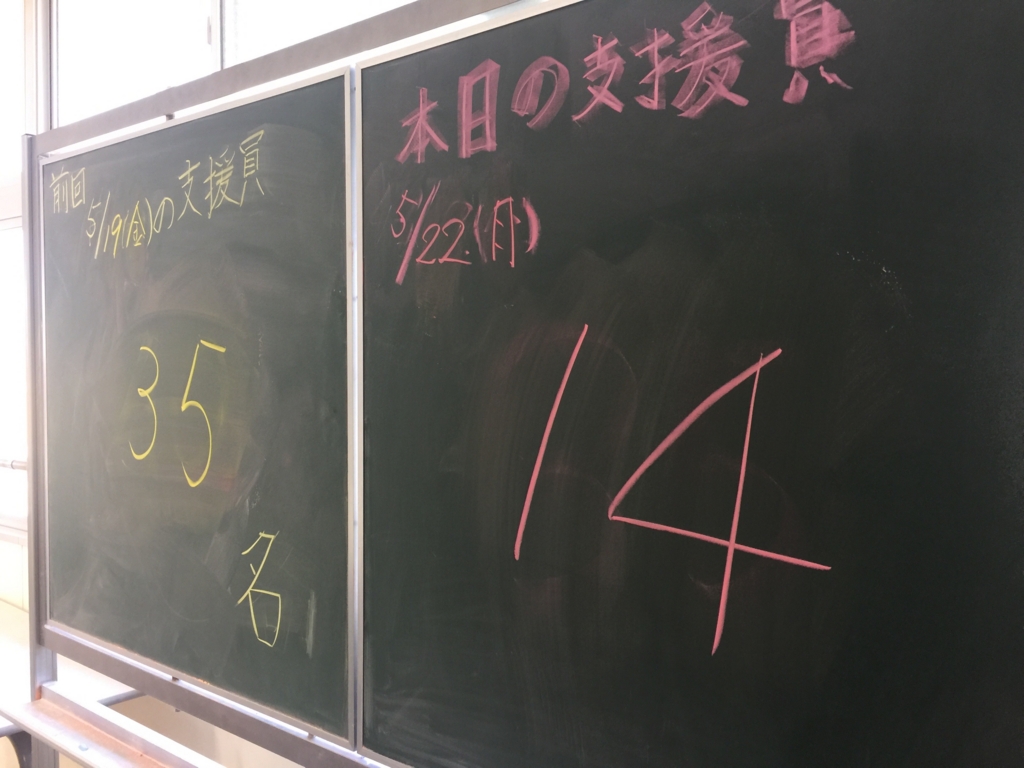 前回
5/19(金)の支援員
35
名
本日の支援員
5/22(月)
14